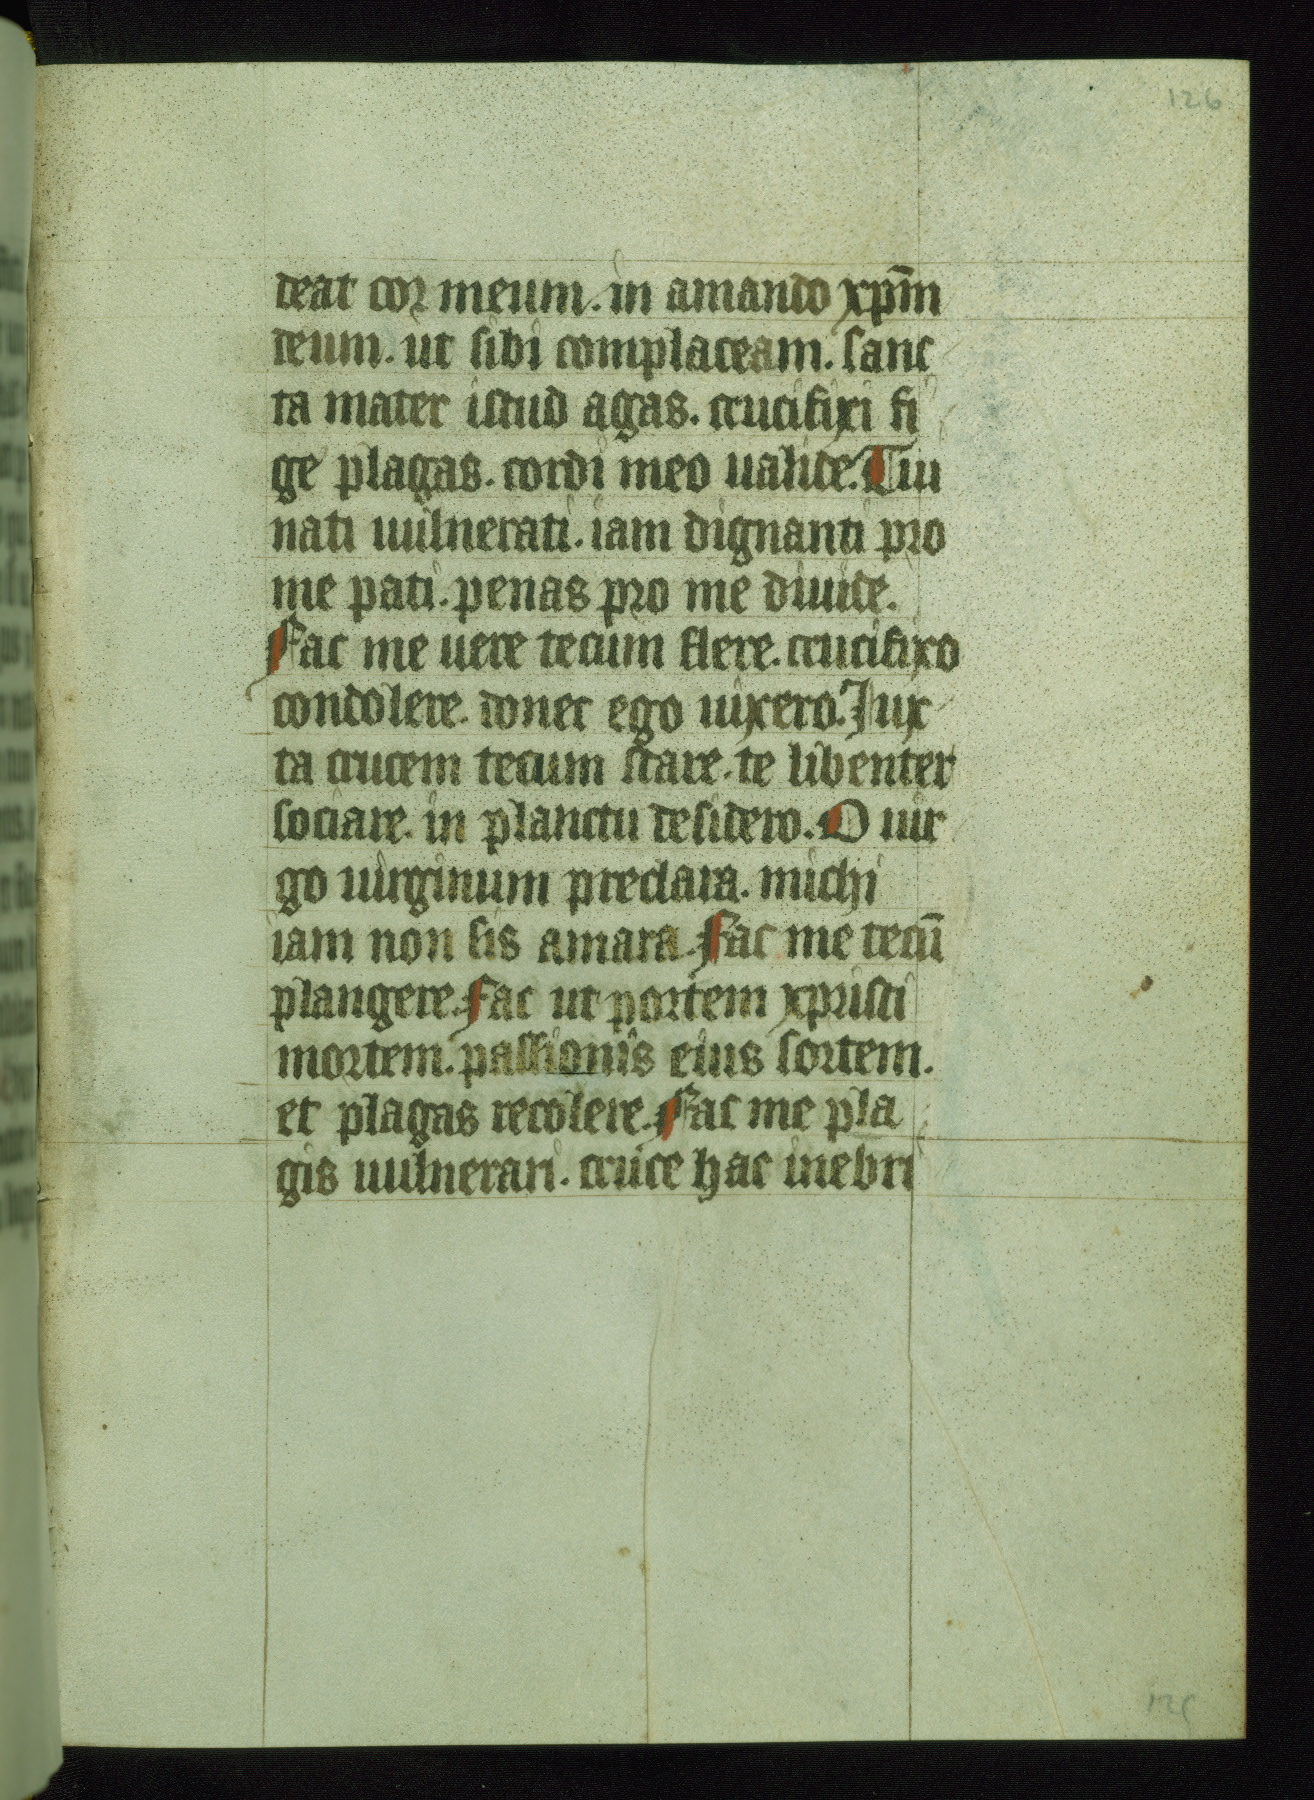 126
deat cor meum. in amando xp̄m
deum. ut sibi complaceam. sanc
ta mater istud agas. crucifixi fi
ge plagas. cordi meo ualide. Tui
nati uulnerati. iam dignanti pro
me pati. penas pro me diuide.
Fac me uere tecum flere. crucifixo
condolere. donec ego uixero. Iux
ta crucem tecum stare. te libenter
sociare. in planctu desidero. O uir
go uirginum preclara. michi
iam non sis amara. Fac me tecū
plangere. Fac ut portem xpristi
mortem. passionis eius sortem.
et plagas recolere. Fac me pla
gis uulnerari. cruce hac inebri
125